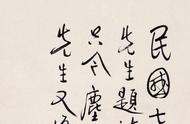 民國十
先生題
只今塵
先生又